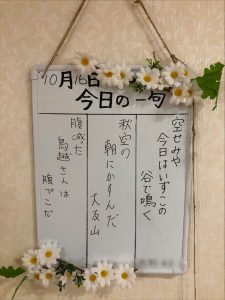 10月16日
今日の一句
空ぜみや
今日はいずこの
谷で鳴く
秋空の
朝にかすんだ
大友山
腹減った
鳥越さんは
腹ペコだ